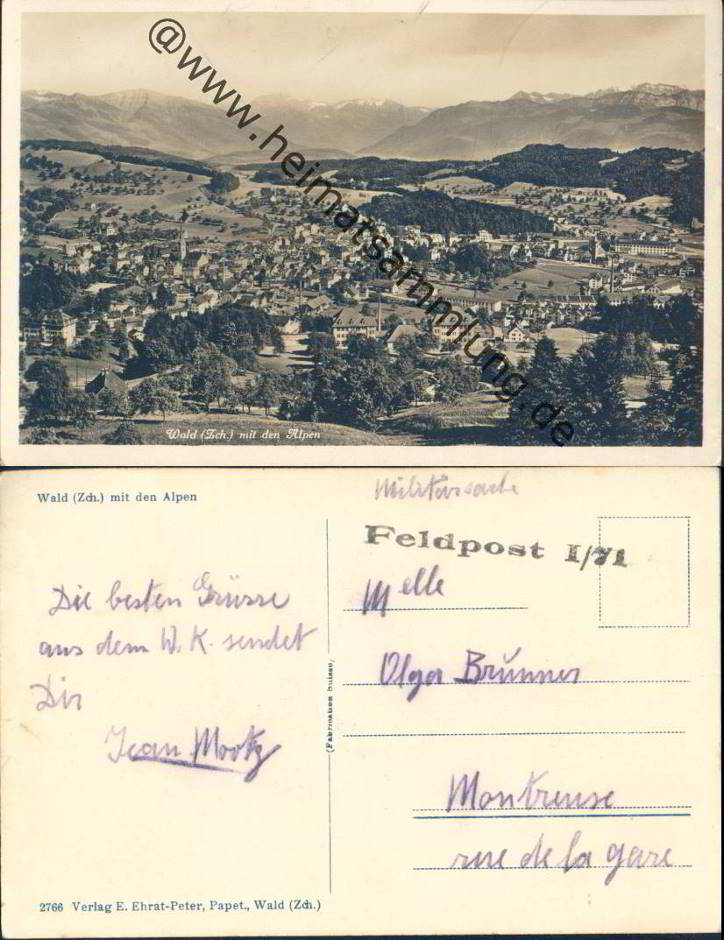 @www.heimatsammlung.de
Wald (Zch.) mit den Alpen
Wald (Zch.) mit den Alpen
Militärsache
Feldpost I/71
Die besten Grüsse
aus dem W. K. sendet
Dir
Jean Mootz
Melle
Olga Brunner
Montreuse
rue de la gare
(Fabrication Suisse)
2766 Verlag E. Ehrat-Peter, Papet., Wald (Zch.)